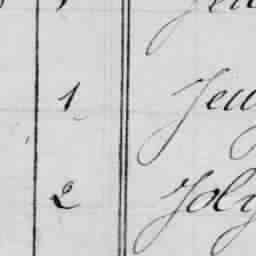 1 Jeu
2 Joly